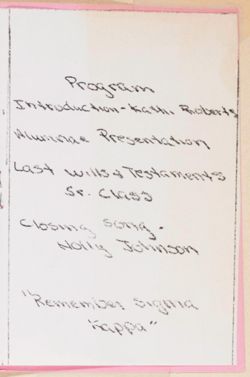 Program
Introduction - Kathi Roberts
Alumnae Presentation
Last Wills & Testaments
Sr. Class
Closing Song -
Holly Johnson
"Remember Sigma
Kappa"